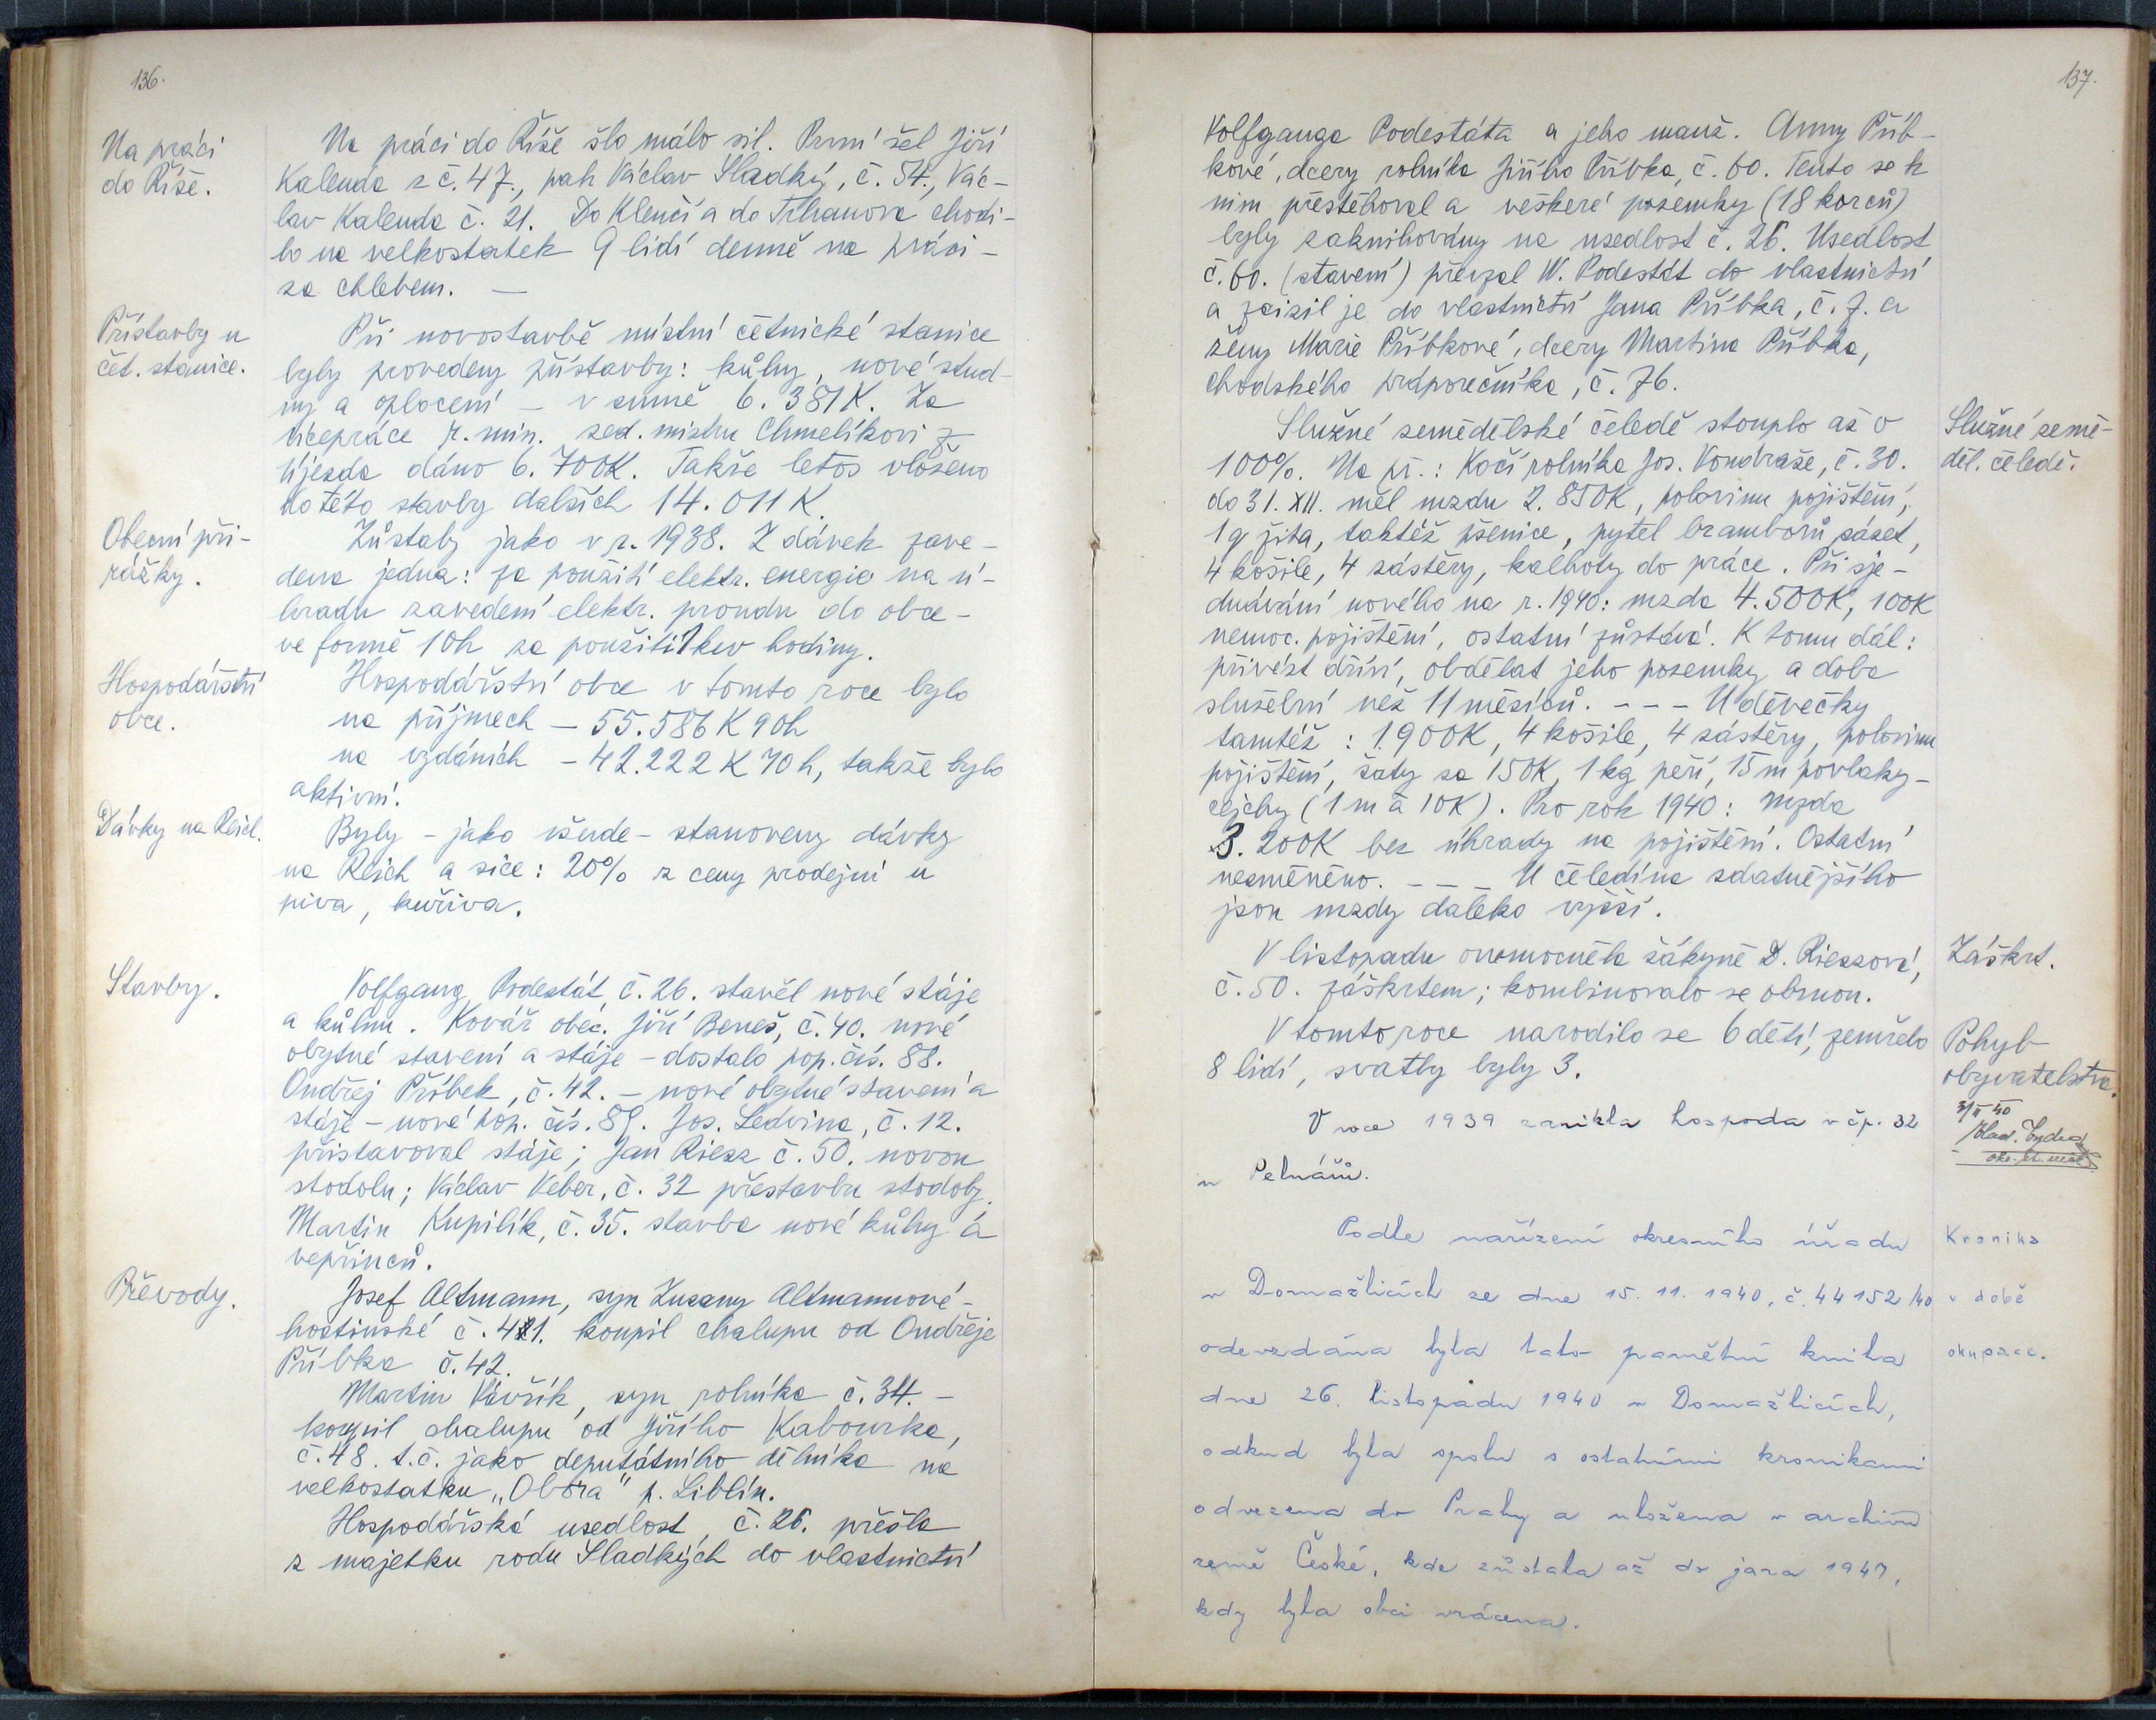 136.
Na práci
do Říše.
Na práci do Říše šlo málo sil. První šel Jiří
Kalenda z č. 47., pak Václav Sladký, č. 54., Vác-
lav Kalenda č. 21. Do Klenčí a do Trhanova chodi-
lo na velkostatek 9 lidí denně na práci -
za chlebem. —
Přístavby u
čet. stanice.
Při novostavbě místní četnické stanice
byly provedeny přístavby: kůlny, nové stud-
ny a oplocení - v sumě 6.381 K. Za
vícepráce r. min. zed. mistru Chmelíkovi z
Újezda dáno 6.700 K. Takže letos vloženo
do této stavby dalších 14.011 K.
Obecní při-
rážky.
Zůstaly jako v r. 1938. Z dávek zave-
dena jedna: za použití elektr. energie na ú-
hradu zavedení elektr. proudu do obce -
ve formě 10 h za použití 1 kw hodiny.
Hospodářství
obce.
Hospodářství obce v tomto roce bylo
na příjmech - 55.586 K 90 h
na vydáních - 42.222 K 70 h, takže bylo
aktivní.
Dávky na Reich.
Byly - jako všude - stanoveny dávky
na Reich a sice: 20% z ceny prodejní u
piva, kuřiva.
Stavby.
Volfgang Podestát, č. 26. stavěl nové stáje
a kůlnu. Kovář obec. Jiří Beneš, č. 40. nové
obytné stavení a stáje - dostalo pop. čís. 88.
Ondřej Příbek, č. 42. - nové obytné stavení a
stáje - nové pop. čís. 89. Jos. Ledvina, č. 12.
přistavoval stáje; Jan Riesz č. 50. novou
stodolu; Václav Veber, č. 32 přestavbu stodoly.
Martin Kupilík, č. 35. stavba nové kůlny a
vepřinců.
Převody.
Josef Altmann, syn Zuzany Altmannové -
hostinské č. 41. koupil chalupu od Ondřeje
Příbka č. 42.
Martin Vavřík, syn rolníka č. 34. -
koupil chalupu od Jiřího Kabourka,
č. 48. t. č. jako deputátního dělníka na
velkostatku „Obora" p. Liblín.
Hospodářská usedlost, č. 26. přešla
z majetku rodu Sladkých do vlastnictví
137.
Volfganga Podestáta a jeho manž. Anny Příb-
kové, dcery rolníka Jiřího Příbka, č. 60. Tento se k
nim přestěhoval a veškeré pozemky (18 korců)
byly zaknihovány na usedlost č. 26. Usedlost
č. 60. (stavení) převzal W. Podestát do vlastnictví
a zcizil je do vlastnictví Jana Příbka, č. 7. a
ženy Marie Příbkové, dcery Martina Příbka,
chodského podporečníka, č. 76.
Služné země-
děl. čeledě.
Služné zemědělské čeledě stouplo až o
100%. Na př.: Kočí rolníka Jos. Vondraše, č. 30.
do 31. XII. měl mzdu 2.850 K, polovinu pojištění,
1 q žita, taktéž pšenice, pytel bramborů sázet,
4 košile, 4 zástěry, kalhoty do práce. Při sje-
dnávání nového na r. 1940: mzda 4.500 K, 100 K
nemoc. pojištění, ostatní zůstává. K tomu dál:
přivést dříví, obdělat jeho pozemky a doba
služební než 11 měsíců. - - - U děvečky
tamtéž: 1.900 K, 4 košile, 4 zástěry, polovinu
pojištění, šaty za 150 K, 1 kg peří, 15 m povlaky -
cejchy (1 m à 10 K). Pro rok 1940: mzda
3.200 K bez úhrady na pojištění. Ostatní
nezměněno. - - - U čeledína zdatnějšího
jsou mzdy daleko vyšší.
Záškrt.
V listopadu onemocněla žákyně D. Rieszová,
č. 50. záškrtem; kombinovalo se obrnou.
Pohyb
obyvatelstva.
V tomto roce narodilo se 6 dětí, zemřelo
8 lidí, svatby byly 3.
V roce 1939 zanikla hospoda v čp. 32
u Pelnářů.
Kronika
v době
okupace.
Podle nařízení okresního úřadu
v Domažlicích ze dne 15. 11. 1940, č. 44152/40
odevzdána byla tato pamětní kniha
dne 26. listopadu 1940 v Domažlicích,
odkud byla spolu s ostatními kronikami
odvezena do Prahy a uložena v archivu
země České, kde zůstala až do jara 1947,
kdy byla obci vrácena.